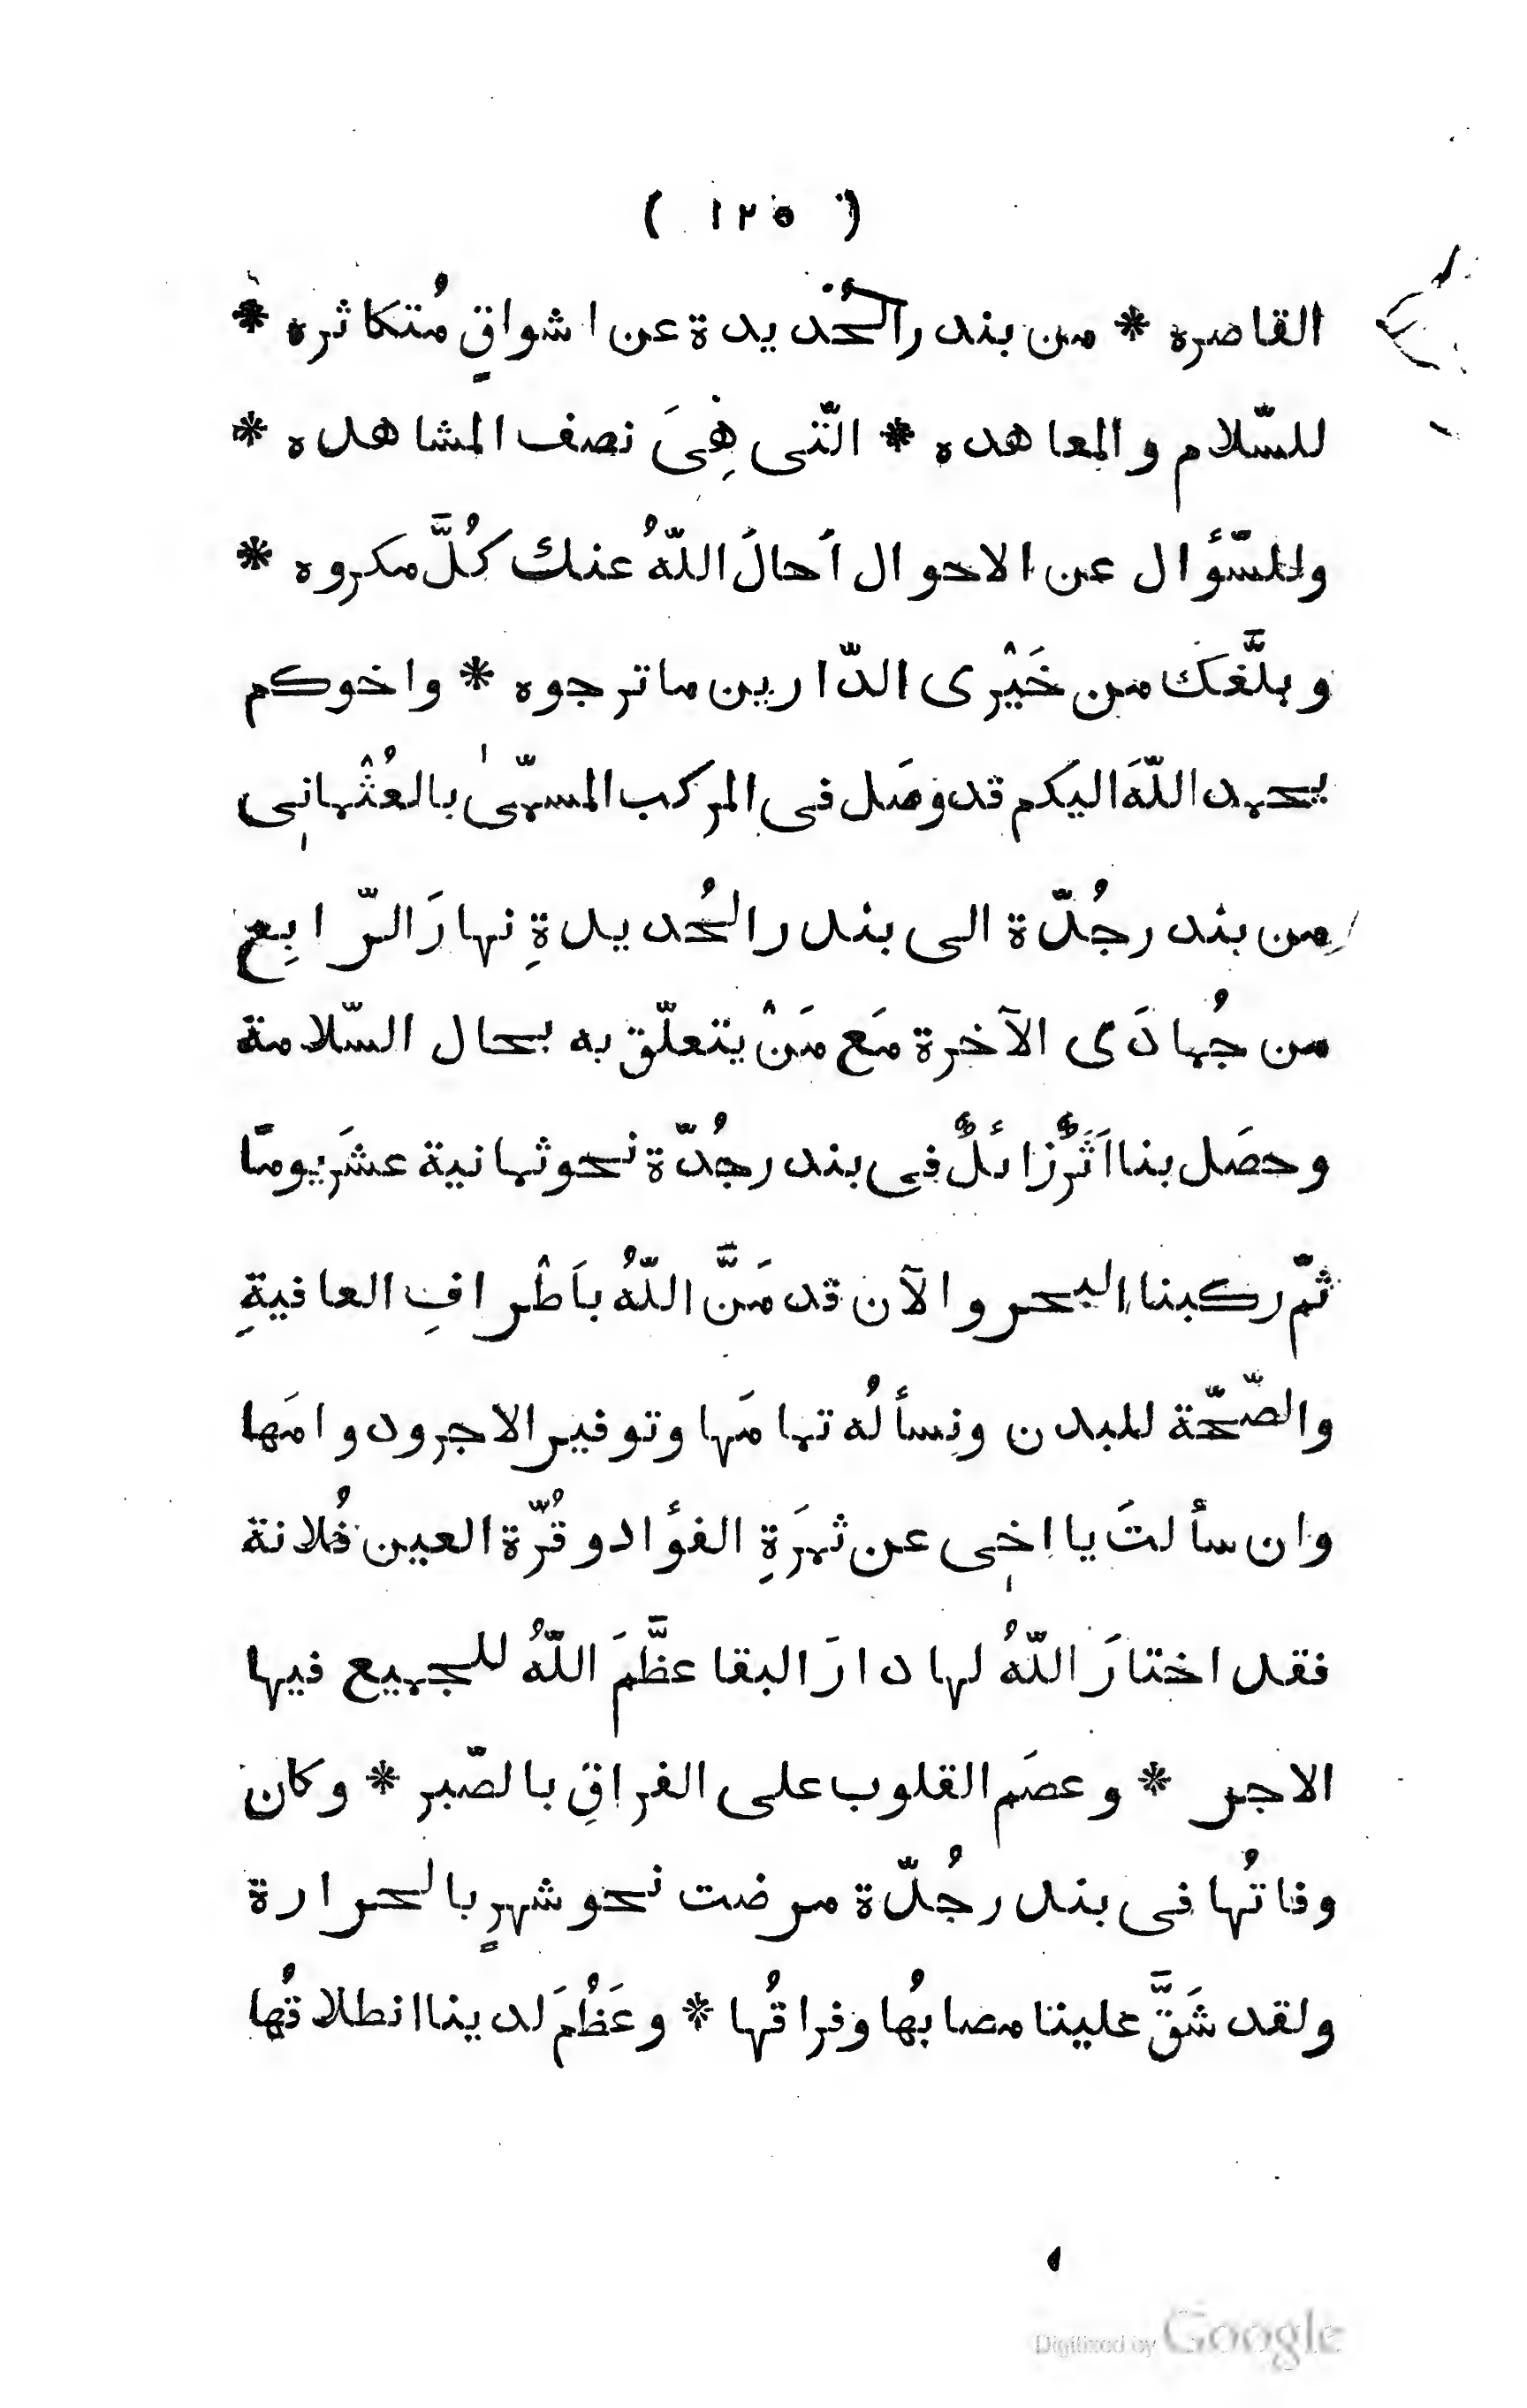 ( ١٢٥ )
القاصره * من بندر الحُديدة عن اشواقٍ مُتكاثره *
للسّلام والمعاهده * الّتى هِىَ نصف المشاهده *
وللسّؤال عن الاحوال اَحالَ اللّهُ عنك كُلَّ مكروه *
وبلَّغَكَ من خَيْرى الدّارين ماترجوه * واخوكم
يحمد اللّهَ اليكم قد وصَل فى المركب المسمّىٰ بالعُثْمانى
مِن بندر جُدّة الى بندر الحُديدةِ نهارَ الرّابِع
من جُمادَى الآخرة مَع مَنْ يتعلّق به بحال السّلامة
وحصَل بنا اَثَرٌ زائلٌ فى بندر جُدّة نحو ثمانية عشَر يومًا
ثمّ ركبنا البحر والآن قد مَنَّ اللّهُ باَطْرافِ العافيةِ
والصّحّة للبدن ونسألُه تمامَها وتوفير الاجر ودوامَها
وان سألتَ يا اخى عن ثمرَةِ الفؤاد وقُرّة العين فُلانة
فقد اختارَ اللّهُ لها دارَ البقا عظَّمَ اللّهُ للجميع فيها
الاجر * وعصَم القلوب على الفراقِ بالصّبر * وكان
وفاتُها فى بندر جُدّة مرضت نحو شهرٍ بالحرارة
ولقد شَقَّ علينا مصابُها وفراقُها * وعَظُمَ لدينا انطلاقُها
Digitized by Google